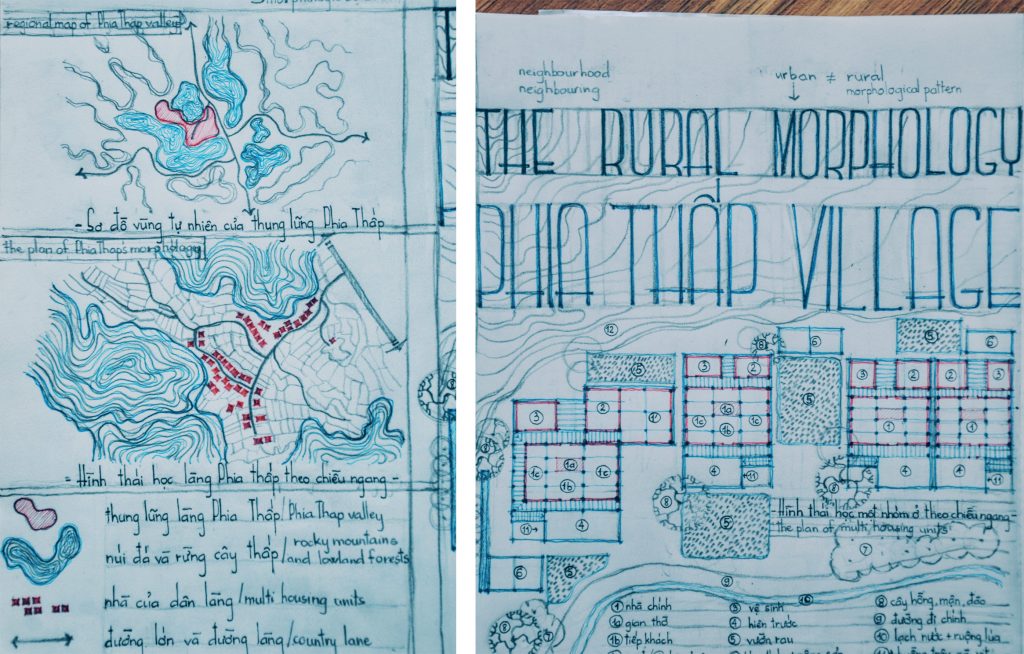 regional map of Phia Thap valley
- Sơ đồ vùng tự nhiên của thung lũng Phia Thấp
the plan of PhiaThap's morphology
- Hình thái học làng Phia Thấp theo chiều ngang -
thung lũng làng Phia Thấp/PhiaThap valley
núi đá và rừng cây thấp/rocky mountains and lowland forests
nhà của dân làng/multi housing units
đường lớn và đường làng/country lane
neighbourhood
neighbouring
urban ≠ rural
morphological pattern
THE RURAL MORPHOLOGY
PHIA THẤP VILLAGE
12
8 6 5 6
15 3 2 3 2 2 3
3 2 1'
1a
1c 1c 5 1 1
1b
1a
1c 1c 4 11 4 4 11
1b
8 8 8
11 4 5
- Hình thái học một nhóm ở theo chiều ngang -
the plan of multi housing units
6 5 7
9
10
8
1 nhà chính
1a gian thờ
1b tiếp khách
3 vệ sinh
4 hiên trước
5 vườn rau
8 cây hồng, mận, đào
9 đường đi chính
10 lạch nước + ruộng lúa